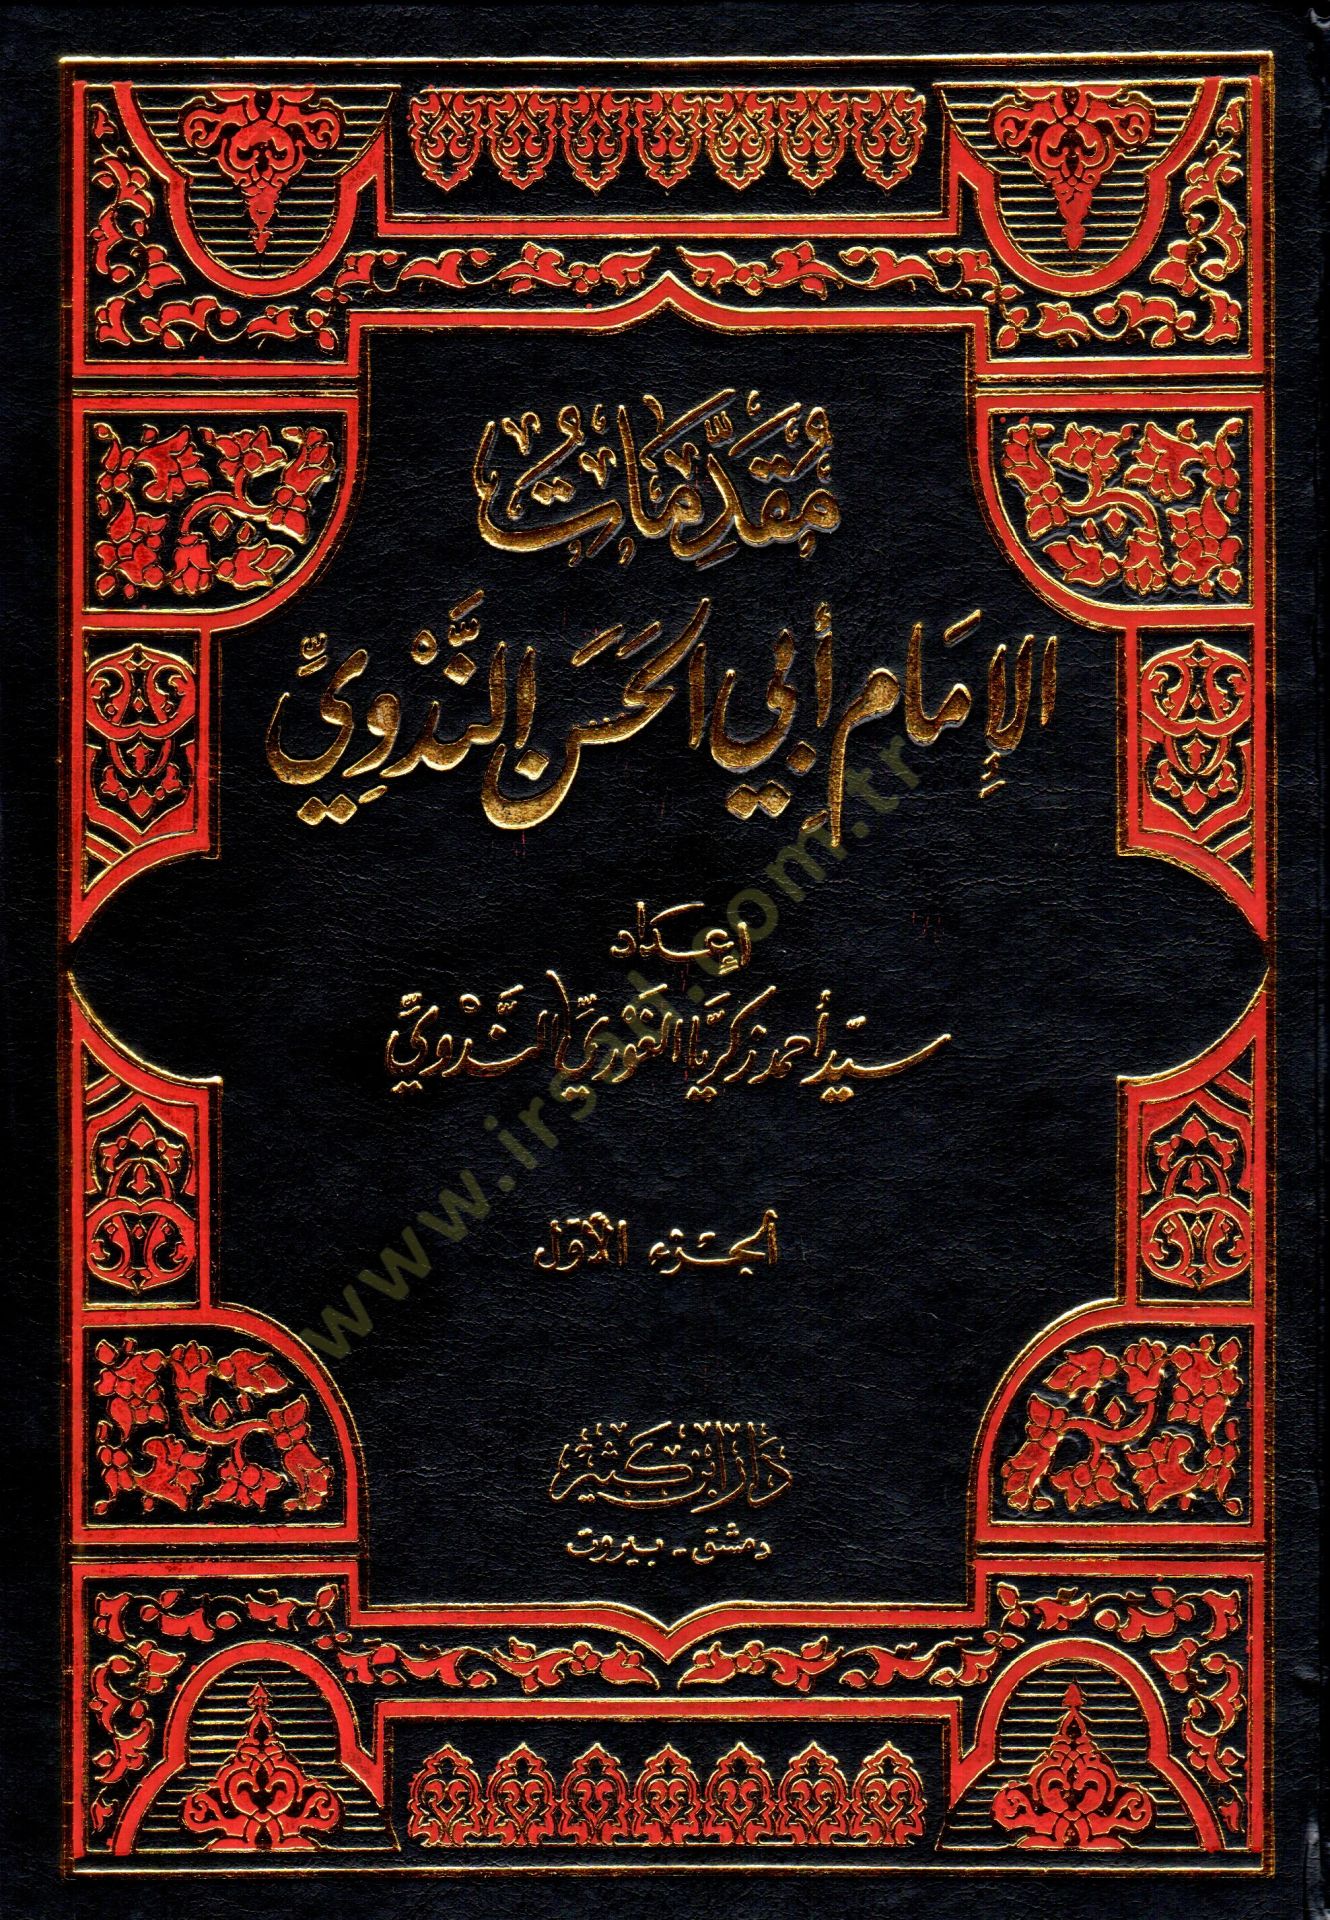 مُقَدِّمَاتُ
الإِمَامِ أَبِي الحَسَنِ النَّدْوِيِّ
إعداد
سيّد أحمد زكريّا الغوريّ النَّدْويّ
الجزء الأول
دار ابن كثير
دمشق - بيروت
www.irsad.com.tr